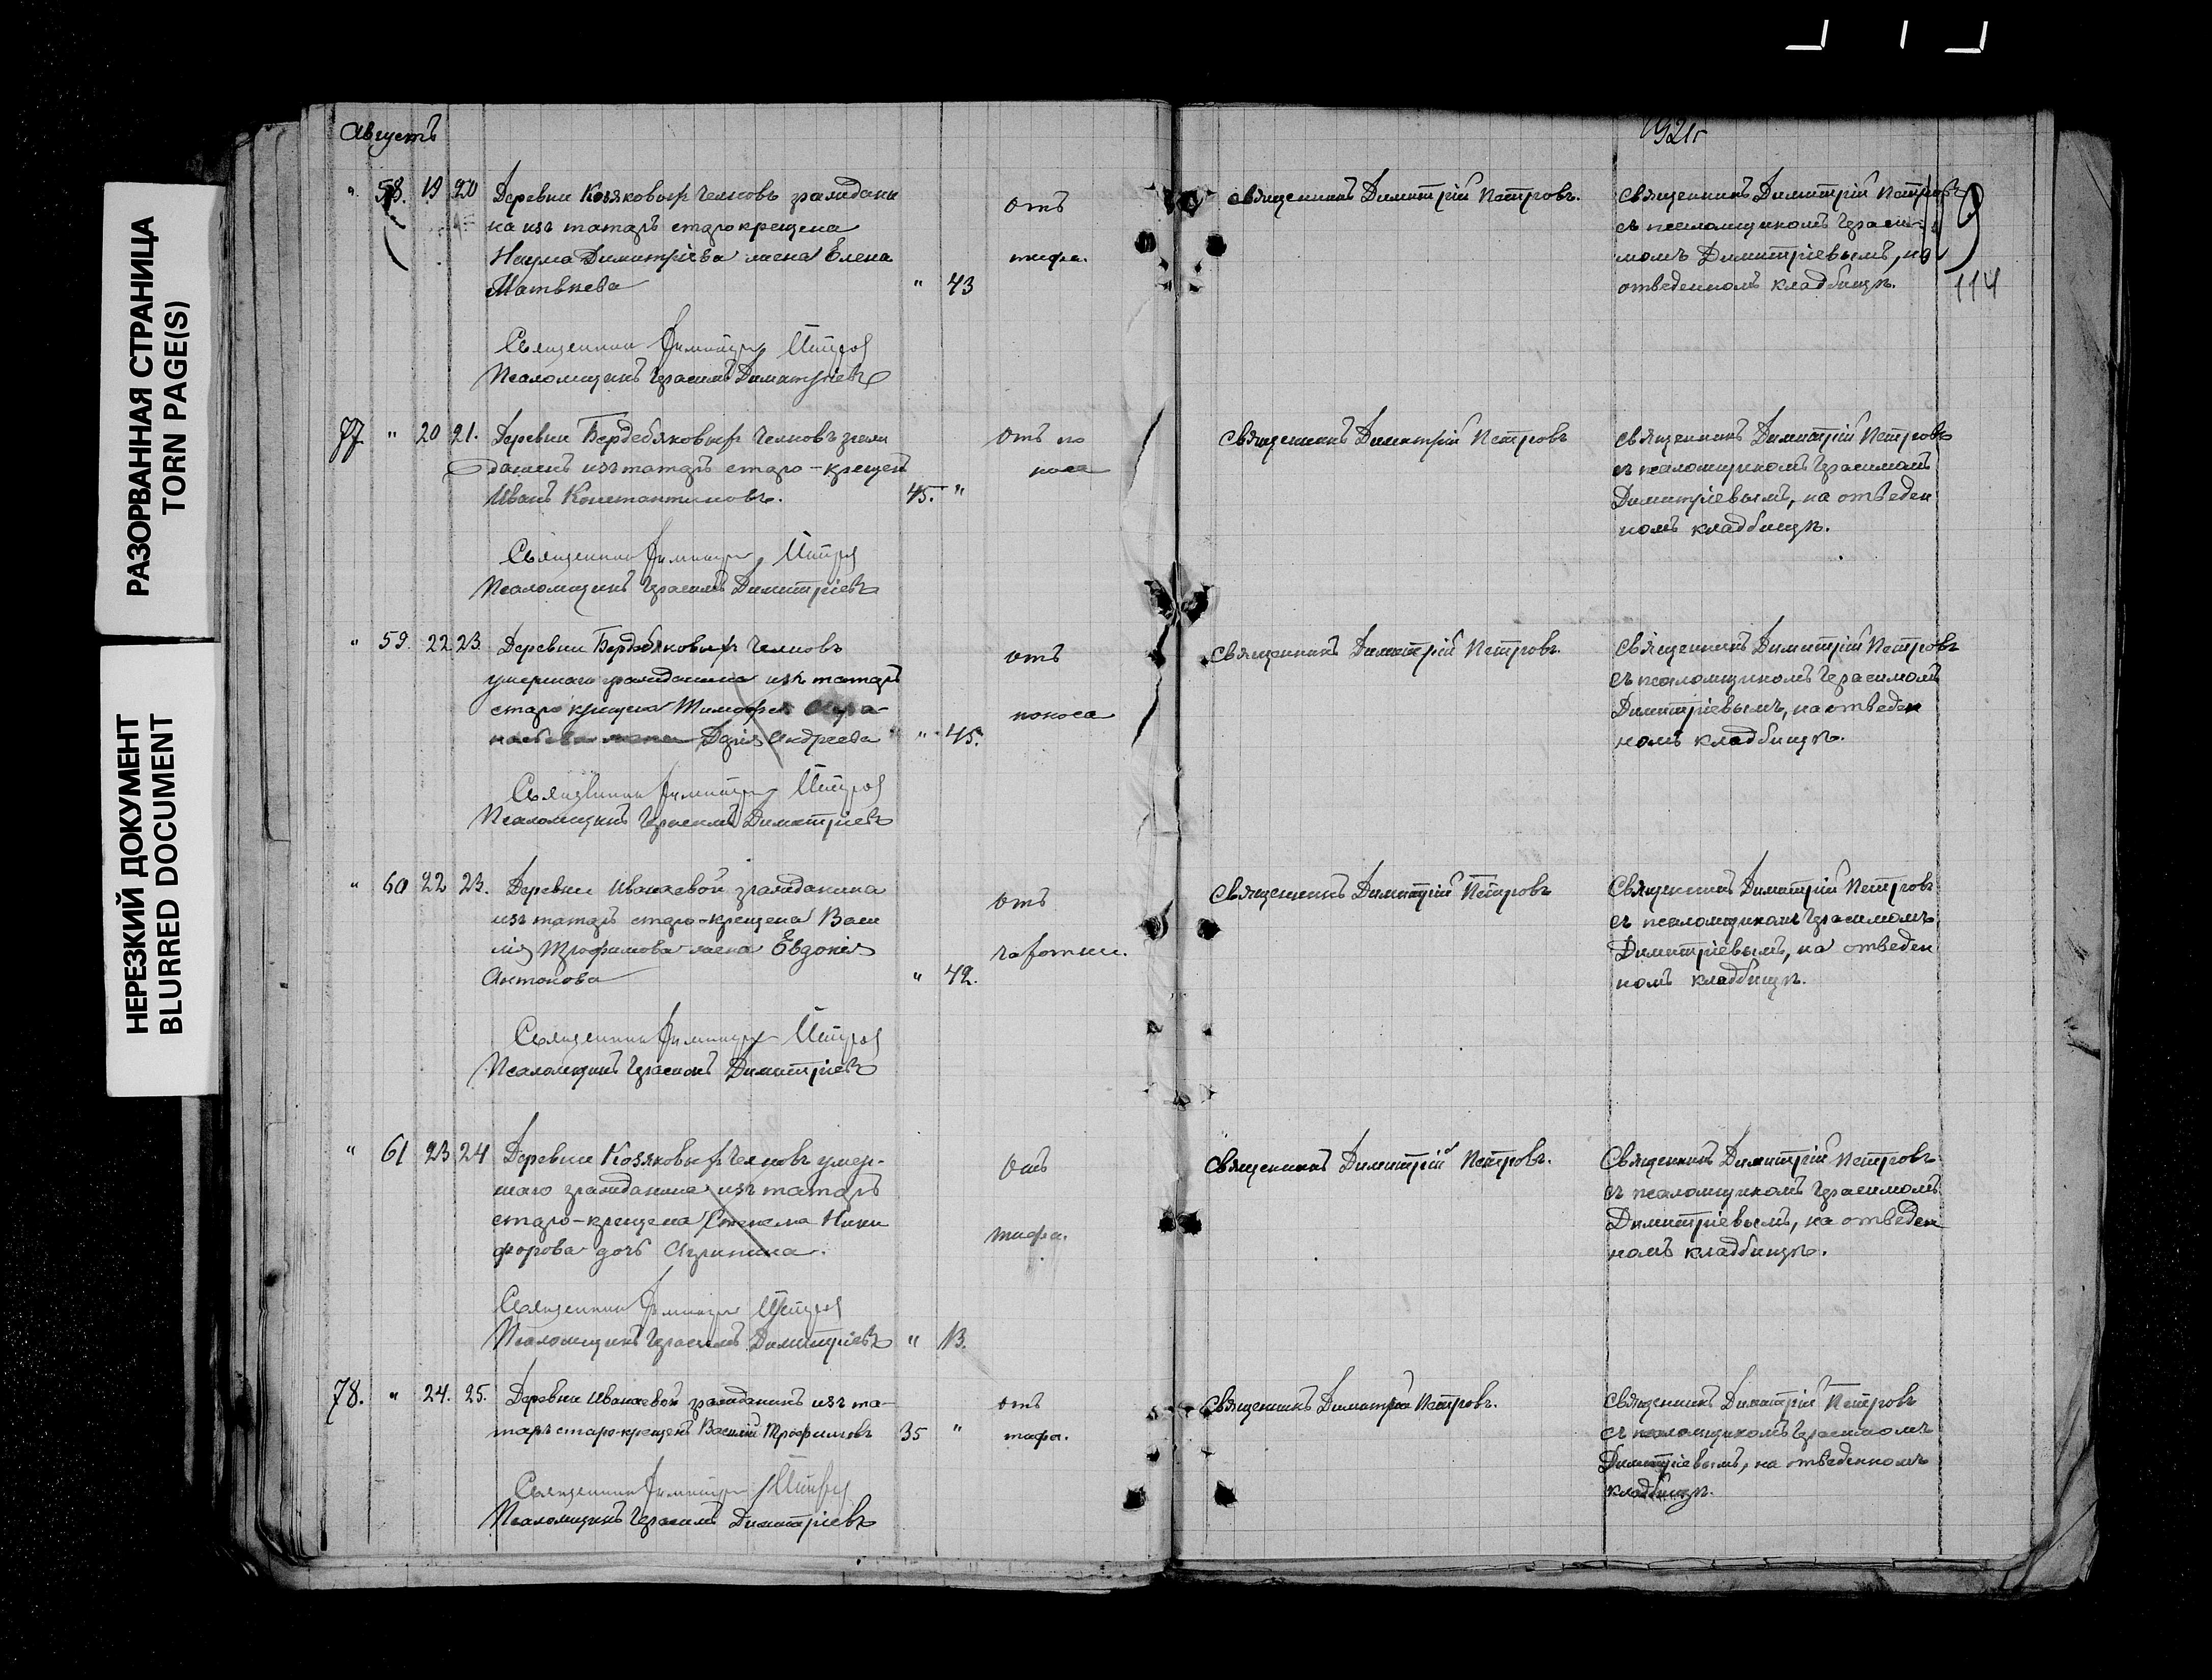 РАЗОРВАННАЯ СТРАНИЦА
TORN PAGE(S)
НЕРЕЗКИЙ ДОКУМЕНТ
BLURRED DOCUMENT
Августъ
1921г
114
" 58. 19 20 Деревни Козяковыхъ Челновъ граждани
на изъ татаръ старокрещена
Наума Димитріева жена Елена
Матвѣева " 43
отъ
тифа.
Священникъ Димитрій Петровъ.
Священникъ Димитрій Петровъ
съ псаломщикомъ Гераси-
момъ Димитріевымъ, на
отведенномъ кладбищѣ.
Священникъ Димитрій Петровъ
Псаломщикъ Герасимъ Димитріевъ
77. " 20 21. Деревни Бердебяковыхъ Челновъ граж
данинъ изъ татаръ старо-крещенъ
Иванъ Константиновъ. 45. "
отъ по
носа
Священникъ Димитрій Петровъ
Священникъ Димитрій Петровъ
съ псаломщикомъ Герасимомъ
Димитріевымъ, на отведен
номъ кладбищѣ.
Священникъ Димитрій Петровъ
Псаломщикъ Герасимъ Димитріевъ
" 59. 22 23. Деревни Бердебяковыхъ Челновъ
умершаго гражданина изъ татаръ
старо крещена Тимофея
Дарія Андреева " 45.
отъ
поноса
Священникъ Димитрій Петровъ.
Священникъ Димитрій Петровъ
съ псаломщикомъ Герасимомъ
Димитріевымъ, на отведен
номъ кладбищѣ.
Священникъ Димитрій Петровъ
Псаломщикъ Герасимъ Димитріевъ
" 60 22 23. Деревни Иванаевой гражданина
изъ татаръ старо-крещена Васи
лія Трофимова жена Евдокія
Антонова " 42.
отъ
чахотки.
Священникъ Димитрій Петровъ
Священникъ Димитрій Петровъ
съ псаломщикомъ Герасимомъ
Димитріевымъ, на отведен
номъ кладбищѣ.
Священникъ Димитрій Петровъ
Псаломщикъ Герасимъ Димитріевъ
" 61 23 24 Деревни Козяковыхъ Челновъ умер-
шаго гражданина изъ татаръ
старо-крещена Стефана Ники
форова дочь Агрипина.
отъ
тифа.
Священникъ Димитрій Петровъ.
Священникъ Димитрій Петровъ
съ псаломщикомъ Герасимомъ
Димитріевымъ, на отведен
номъ кладбищѣ.
Священникъ Димитрій Петровъ
Псаломщикъ Герасимъ Димитріевъ " 13.
78. " 24. 25. Деревни Иванаевой гражданинъ изъ та-
таръ старо-крещенъ Василій Трофимовъ 35 "
отъ
тифа.
Священникъ Димитрій Петровъ.
Священникъ Димитрій Петровъ
съ псаломщикомъ Герасимомъ
Димитріевымъ, на отведенномъ
кладбищѣ.
Священникъ Димитрій Петровъ
Псаломщикъ Герасимъ Димитріевъ